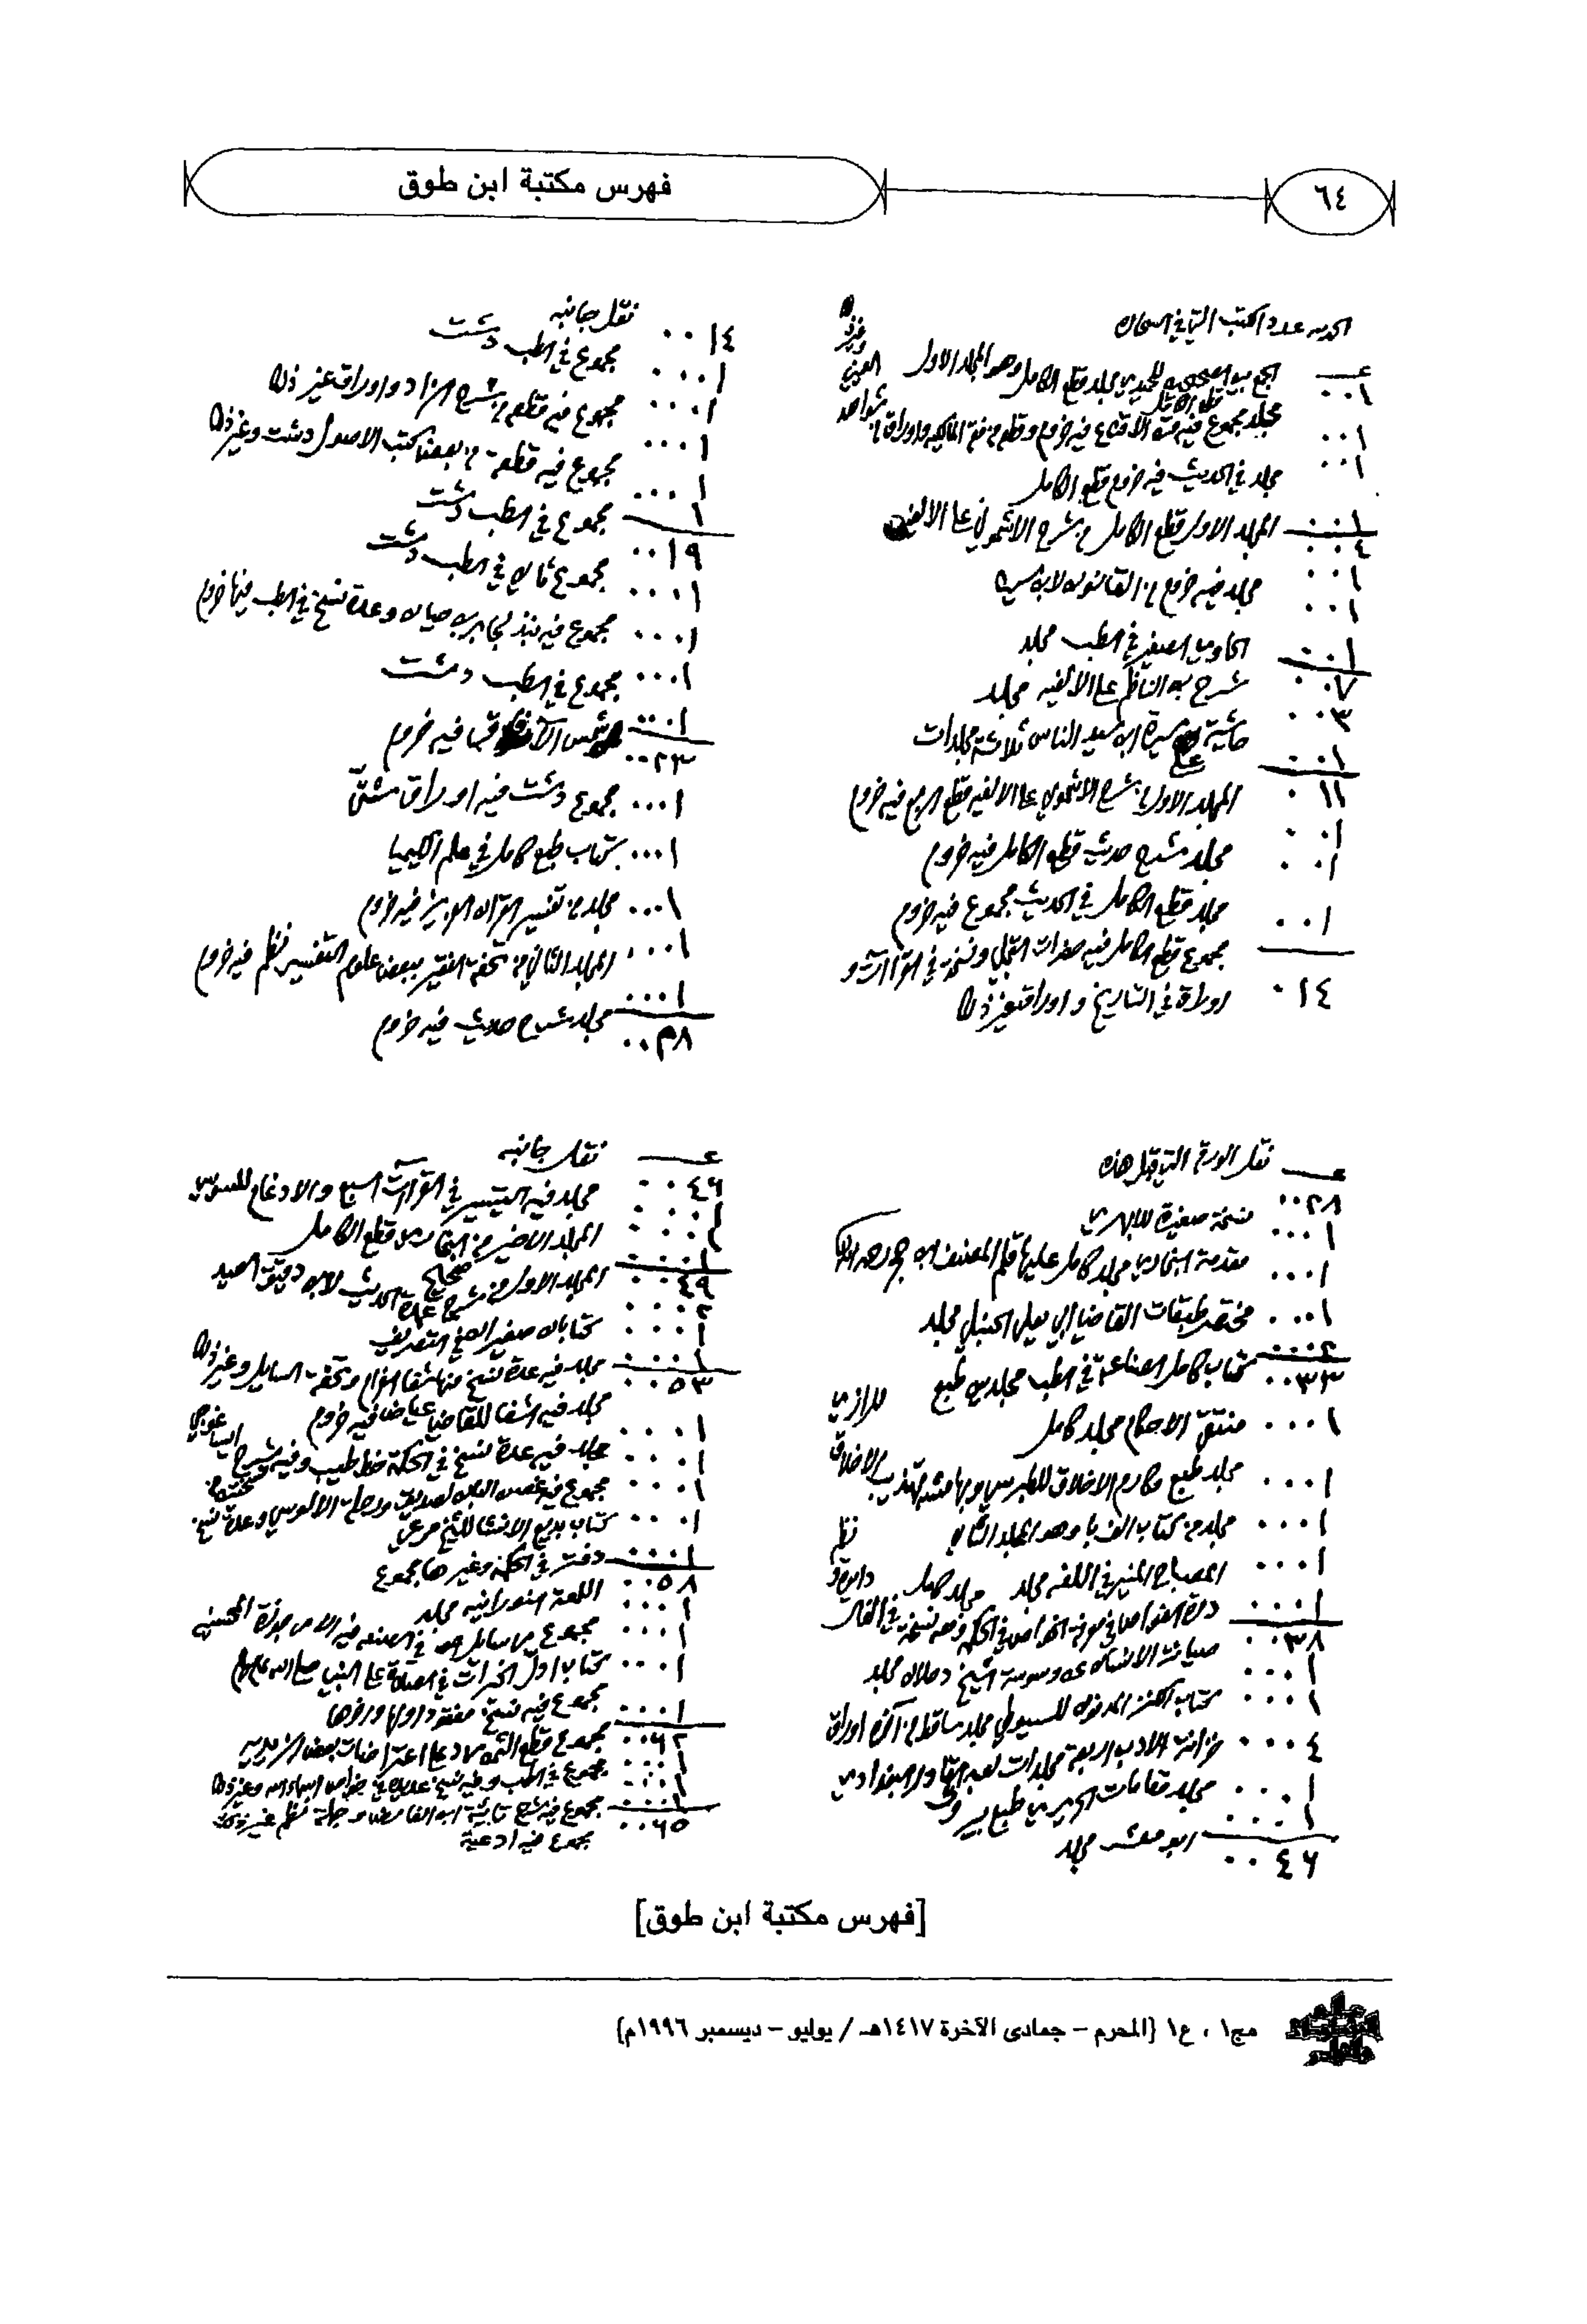 ٦٤
فهرس مكتبة ابن طوق
الحمد لله عدد الكتب التي في
الجمع بين الصحيحين للحميدي مجلد قطع الكامل وهو المجلد الاول
٠٠١
مجلد مجموع فيه فيه خروم وقطعه من فقه المالكيه واوراق من شواهد
٠٠١
مجلد في الحديث فيه خروم قطع الكامل
٠٠١
المجلد الاول قطع الكامل من شرح الاشموني على الالفيه
٠٠١
٠٠٤
مجلد فيه خروم من القانون لابن سينا
٠٠١
الحاوي الصغير في الطب مجلد
٠٠١
شرح بن الناظم على الالفيه مجلد
٠٠١
٠٠٧
حاشية على سيرة ابن سيد الناس ثلاثة مجلدات
٠٠٣
المجلد الاول من شرح الاشموني على الالفيه قطع الربع فيه خروم
٠٠١
٠١١
مجلد شرح حديث قطع الكامل فيه خروم
٠٠١
مجلد قطع الكامل في الحديث مجموع فيه خروم
٠٠١
مجموع قطع الكامل فيه ونسخة في القراآت و
٠٠١
اوراق في التاريخ واوراق غير ذلك
٠١٤
نقل جانبه
٠٠١٤
مجموع في الطب دشت
٠٠٠١
مجموع فيه قطعه من شرح الزاد واوراق غير ذلك
٠٠٠١
مجموع فيه قطعة من بعض كتب الاصول دشت وغير ذلك
٠٠٠١
مجموع في الطب دشت
٠٠٠١
١
٠٠١٩
مجموع ثاني في الطب دشت
٠٠٠١
مجموع فيه نبذ لجابر بن حيان وعدة نسخ في الطب فيها خروم
٠٠٠١
مجموع في الطب دشت
٠٠٠١
شمس الآفاق فيه خروم
٠٠٠١
٠٠٢٣
مجموع دشت فيه اوراق شتى
٠٠٠١
كتاب طبع كامل في علم الكيميا
٠٠٠١
مجلد من تفسير القران العزيز فيه خروم
٠٠٠١
المجلد الثاني من تحفة الفقير ببعض علوم التفسير نظم فيه خروم
٠٠٠١
مجلد شرح حديث فيه خروم
٠٠٠١
٠٠٢٨
نقل الورقة التي قبل هذه
٠٠٢٨
نسخة صغيرة للابهري
٠٠٠١
مقدمة البخاري مجلد كامل عليها قلم المصنف ابن حجر رحمه الله
٠٠٠١
مختصر طبقات القاضي ابي يعلى الحنبلي مجلد
٠٠٠١
كتاب كامل الصناعة في الطب مجلدين طبع للرازي
٠٠٠٢
٠٠٣٣
منتقى الاحكام مجلد كامل
٠٠٠١
مجلد طبع مكارم الاخلاق للطبرسي وبهامشه تهذيب الاخلاق
٠٠٠١
مجلد من كتاب الف با وهو المجلد الثاني
٠٠٠١
المصباح المنير في اللغه مجلد
٠٠٠١
درة الغواص في معرفة الخواص في الحكمه ومعه نسخة في الفال
٠٠٠١
٠٠٣٨
صيانة الانسان عن وسوسة الشيخ دحلان مجلد
٠٠٠١
كتاب الكنز المدفون للسيوطي مجلد ساقط من آخره اوراق
٠٠٠١
خزانة الادب اربعة مجلدات لعبد القادر البغدادي
٠٠٠٤
مجلد مقامات الحريري طبع بيروت
٠٠٠١
ابو معشر مجلد
٠٠٠١
٠٠٤٦
نقل جانبه
٠٠٤٦
مجلد فيه التيسير في القراآت السبع والادغام للسوسي
المجلد الاخير من البخاري قطع الكامل
المجلد الاول من شرح عمدة الحديث لابن دقيق العيد
٠٠٤٩
كتابان صغيران في التصريف
٠٠٠٢
مجلد فيه عدة نسخ منها شفا الغرام وتحفة السايل وغير ذلك
٠٠٠١
٠٠٥٣
مجلد فيه الشفا للقاضي عياض فيه خروم
٠٠٠١
مجلد فيه عدة نسخ في الحكمة خط طيب وفيه شرح ايساغوجي
٠٠٠١
مجموع فيه غصن البان لصديق ورحلة الالوسي وعدة نسخ
٠٠٠١
كتاب بديع الانشا للشيخ مرعي
٠٠٠١
دفتر في الحكمة وغيرها مجموع
٠٠٠١
٠٠٥٨
اللمعة النورانيه مجلد
٠٠٠١
مجموع رسايل في الصنعه
٠٠٠١
كتاب دلائل الخيرات في الصلاة على النبي صلى الله عليه وسلم
٠٠٠١
مجموع فيه نسخ مفقود اولها واخرها
٠٠٠١
٠٠٦٢
مجموع قطع الثمن رد على اعتراضات بعض
مجموع في الطب وفيه نسخ عديدة في خواص اسماء الله وغير ذلك
مجموع فيه شرح تائية ابن الفارض وجملة نظم غير ذلك
٠٠٦٥
مجموع فيه ادعية
[فهرس مكتبة ابن طوق]
مج١ ، ع١ (المحرم – جمادى الآخرة ١٤١٧هـ / يوليو – ديسمبر ١٩٩٦م)